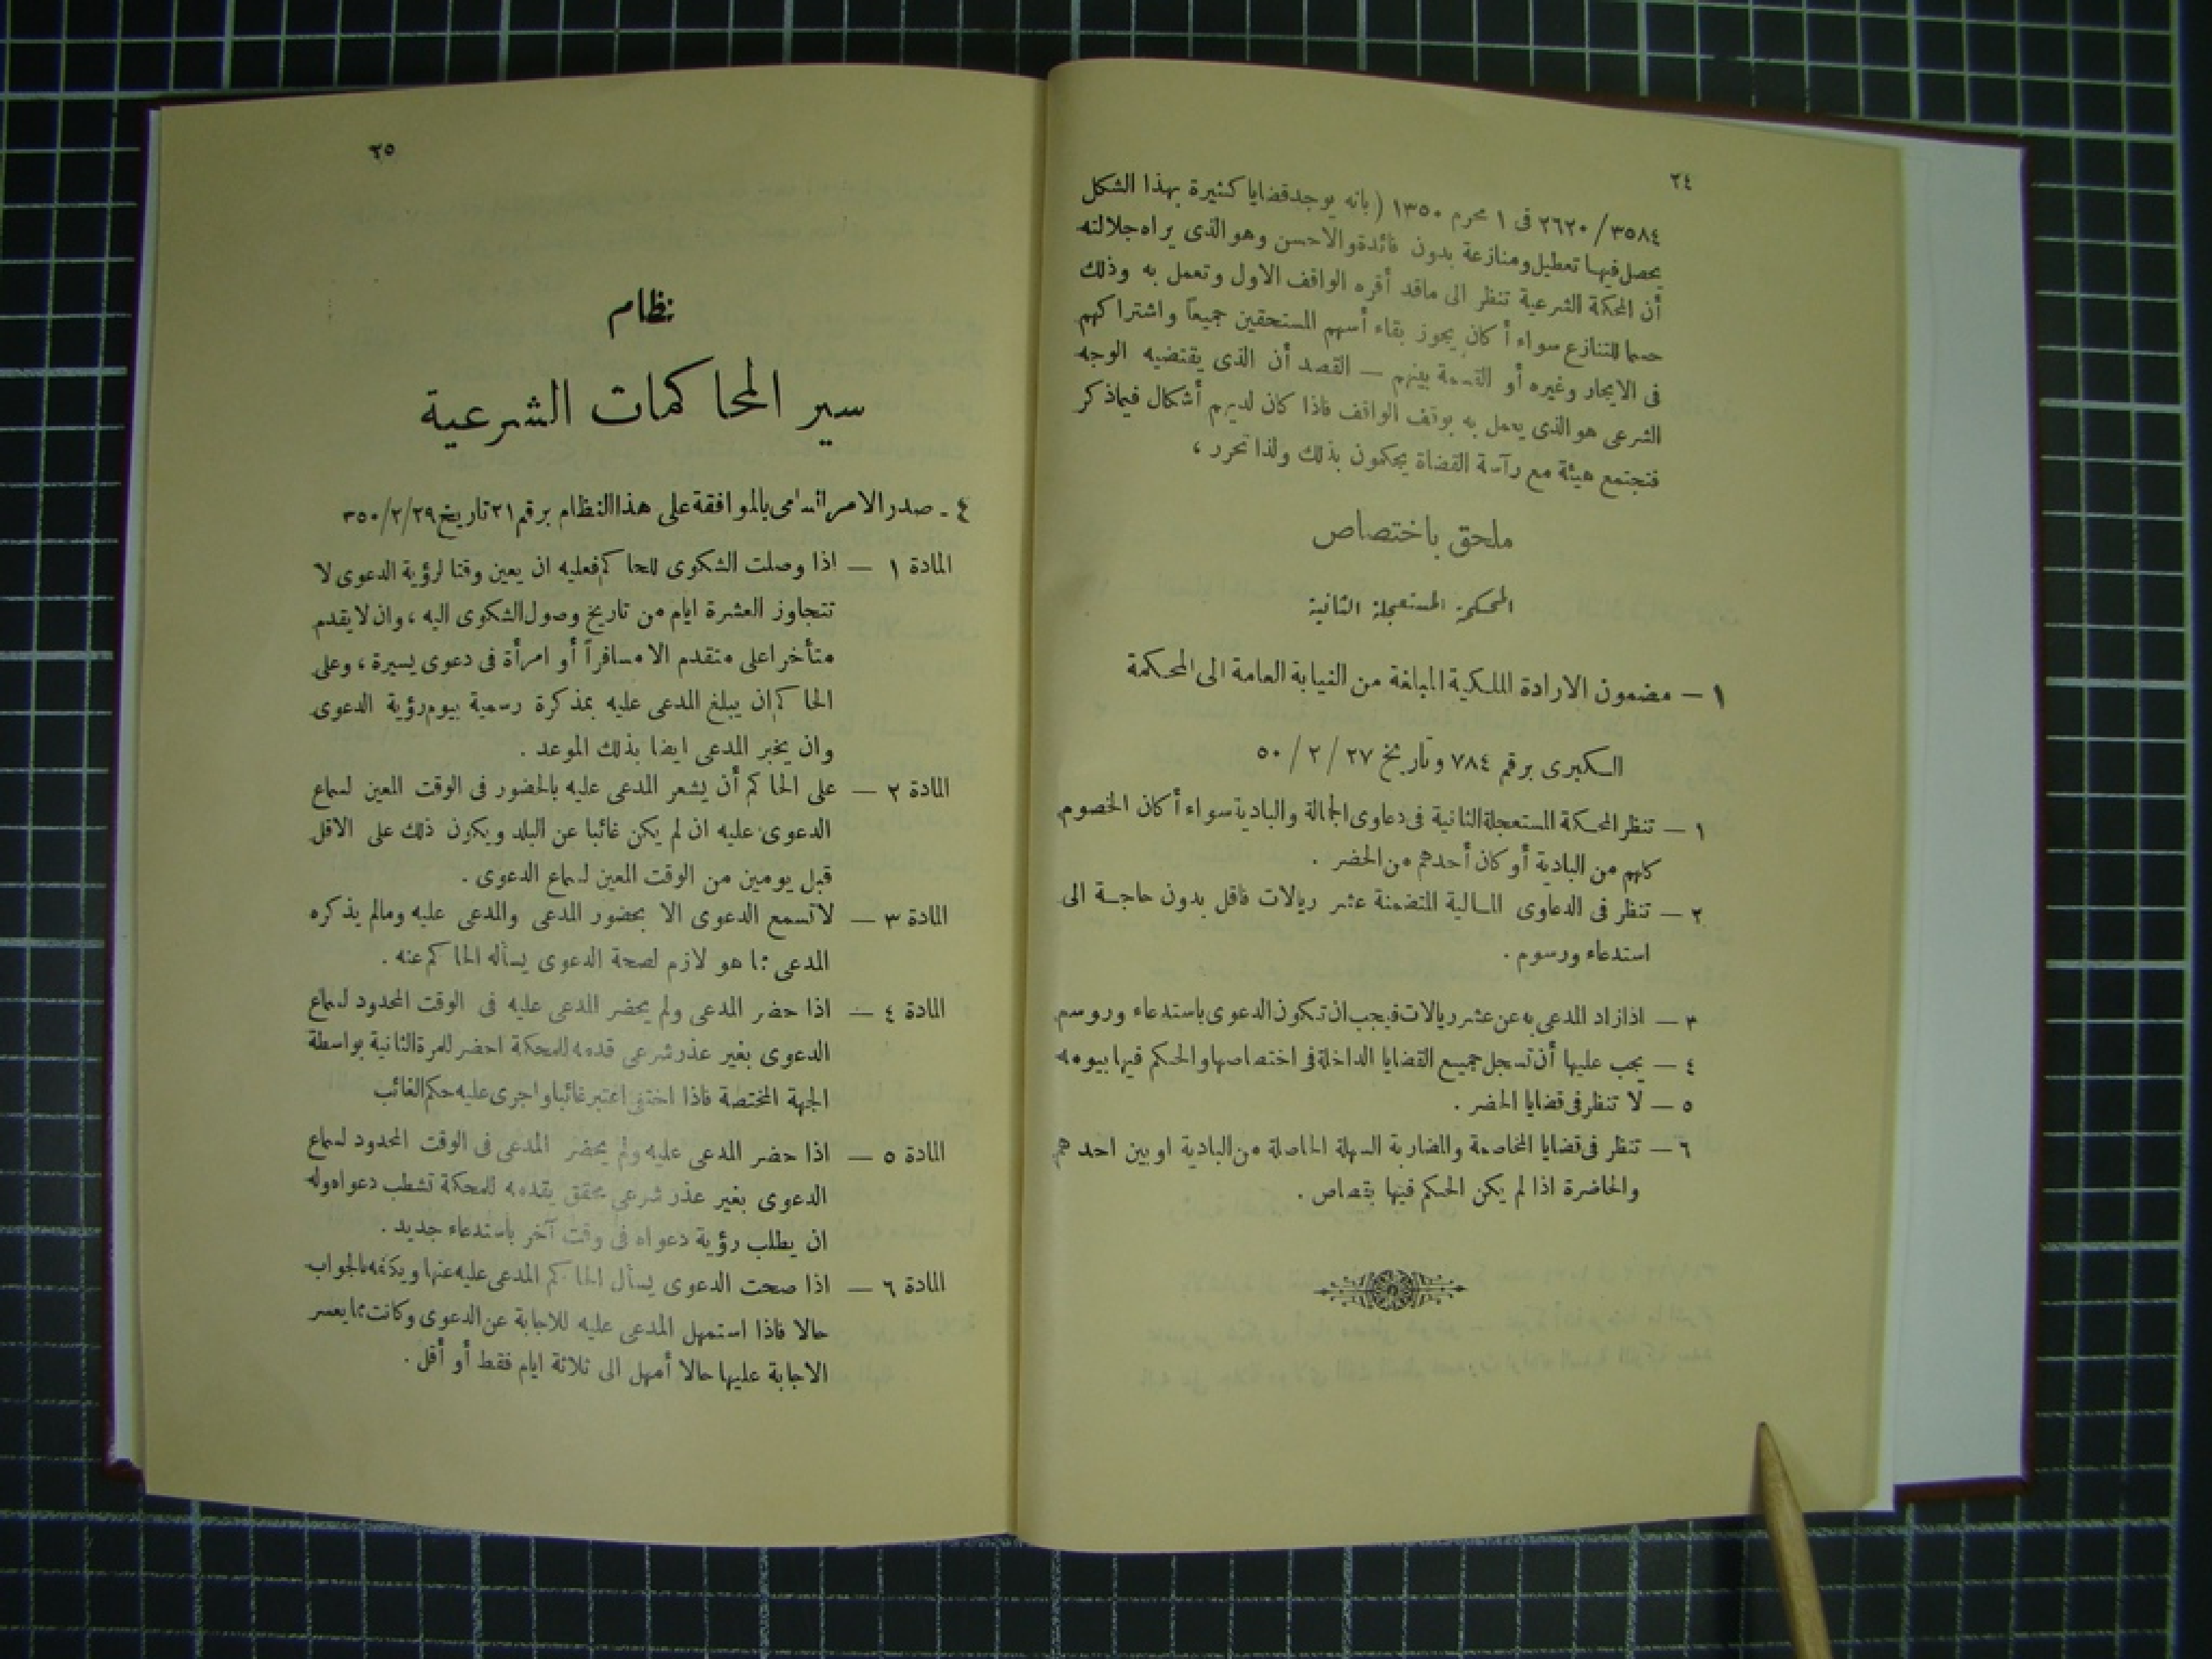 ٢٤
٣٥٨٤ / ٢٦٢٠ فى ١ محرم ١٣٥٠ ( بانه يوجد قضايا كثيرة بهذا الشكل
يحصل فيها تعطيل ومنازعة بدون فائدة والاحسن وهو الذى يراه جلالته
أن المحكمة الشرعية تنظر الى ماقد أقره الواقف الاول وتعمل به وذلك
حسما للتنازع سواء أكان يجوز بقاء أسهم المستحقين جميعاً واشتراكهم
فى الايجار وغيره أو القسمة بينهم — القصد أن الذى يقتضيه الوجه
الشرعى هو الذى يعمل به بوقف الواقف فاذا كان لديهم أشكال فيماذكر
فتجتمع هيئة مع رآسة القضاة يحكمون بذلك ولذا تحرر ،
ملحق باختصاص
المحكمة المستعجلة الثانية
١ — مضمون الارادة الملكية المبلغة من النيابة العامة الى المحكمة
الكبرى برقم ٧٨٤ وتاريخ ٢٧ / ٢ / ٥٠
١ — تنظر المحكمة المستعجلة الثانية فى دعاوى الجمالة والبادية سواء أكان الخصوم
كلهم من البادية أو كان أحدهم من الحضر .
٢ — تنظر فى الدعاوى المالية المتضمنة عشر ريالات فاقل بدون حاجة الى
استدعاء ورسوم .
٣ — اذا زاد المدعى به عن عشر ريالات فيجب ان تكون الدعوى باستدعاء وروسم
٤ — يجب عليها أن تسجل جميع القضايا الداخلة فى اختصاصها والحكم فيها بيومه
٥ — لا تنظر فى قضايا الحضر .
٦ — تنظر فى قضايا المخاصمة والمضاربة السهلة الحاصلة من البادية او بين احدهم
والحاضرة اذا لم يكن الحكم فيها بقصاص .
٢٥
نظام
سير المحاكمات الشرعية
٤ - صدر الامر السامى بالموافقة على هذا النظام برقم ٢١ تاريخ ٣٥٠/٢/٢٩
المادة ١ — اذا وصلت الشكوى للحاكم فعليه ان يعين وقتا لرؤية الدعوى لا
تتجاوز العشرة ايام من تاريخ وصول الشكوى اليه ، وان لايقدم
متأخرا على متقدم الا مسافراً أو امرأة فى دعوى يسيرة ، وعلى
الحاكم ان يبلغ المدعى عليه بمذكرة رسمية بيوم رؤية الدعوى
وان يخبر المدعى ايضا بذلك الموعد .
المادة ٢ — على الحاكم أن يشعر المدعى عليه بالحضور فى الوقت المعين لسماع
الدعوى عليه ان لم يكن غائبا عن البلد ويكون ذلك على الاقل
قبل يومين من الوقت المعين لسماع الدعوى .
المادة ٣ — لاتسمع الدعوى الا بحضور المدعى والمدعى عليه ومالم يذكره
المدعى مما هو لازم لصحة الدعوى يسأله الحاكم عنه .
المادة ٤ — اذا حضر المدعى ولم يحضر المدعى عليه فى الوقت المحدود لسماع
الدعوى بغير عذر شرعى قدمه للمحكمة احضر للمرة الثانية بواسطة
الجهة المختصة فاذا اختفى اعتبر غائبا واجرى عليه حكم الغائب
المادة ٥ — اذا حضر المدعى عليه ولم يحضر المدعى فى الوقت المحدود لسماع
الدعوى بغير عذر شرعى محقق يقدمه للمحكمة تشطب دعواه وله
ان يطلب رؤية دعواه فى وقت آخر باستدعاء جديد .
المادة ٦ — اذا صحت الدعوى يسأل الحاكم المدعى عليه عنها ويكلفه بالجواب
حالا فاذا استمهل المدعى عليه للاجابة عن الدعوى وكانت مما يعسر
الاجابة عليها حالا أمهل الى ثلاثة ايام فقط أو أقل .